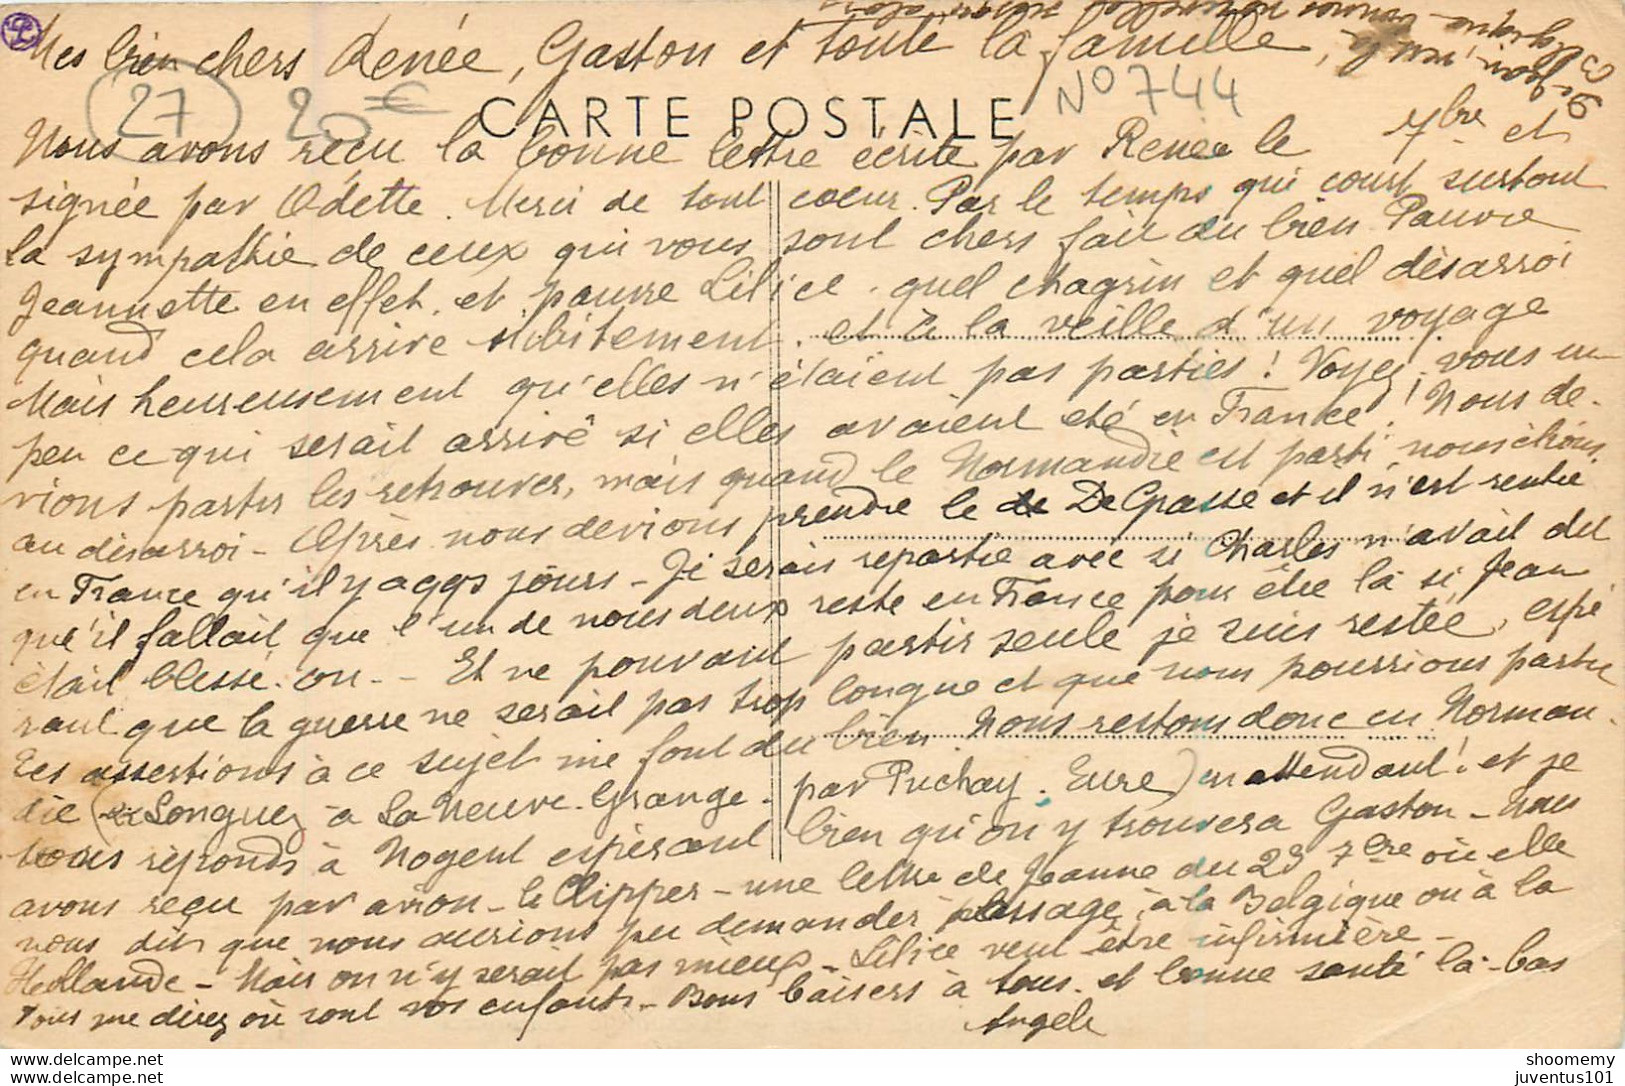 Mes bien chers Renée, Gaston et toute la famille,
27 20 € CARTE POSTALE N° 744
Nous avons reçu la bonne lettre écrite par Renée le 7bre et
signée par Odette. Merci de tout coeur. Par le temps qui court surtout
la sympathie de ceux qui vous sont chers fait du bien. Pauvre
Jeannette en effet, et pauvre Lilice. quel chagrin et quel désarroi
quand cela arrive subitement. et à la veille d'un voyage
Mais heureusement qu'elles n'étaient pas parties! Voyez vous un
peu ce qui serait arrivé si elles avaient été en France! Nous de-
vions partir les retrouver, mais quand le Normandie est parti, nous étions
au désarroi - Après nous devions prendre le De Grasse et il n'est rentré
en France qu'il y a qqs jours - Je serais repartie avec si Charles n'avait dit
qu'il fallait que l'un de nous deux reste en France pour être là si Jean
était blessé. ou - - Et ne pouvant partir seule je suis restée, espé
rant que la guerre ne serait pas trop longue et que nous pourrions partir
Les assertions à ce sujet me font du bien. Nous restons donc en Norman-
die (Longuez à La Neuve-Grange. par Puchay. Eure) en attendant! et je
vous réponds à Nogent espérant bien qu'on y trouvera Gaston - Nous
avons reçu par avion - le Clipper - une lettre de Jeanne du 23 7bre où elle
nous dit que nous aurions pu demander passage, à la Belgique ou à la
Hollande - Mais on n'y serait pas mieux - Lilice veut être infirmière -
Vous me direz où sont vos enfants - Bons baisers à tous. et bonne santé là-bas
Angèle
shoomemy
juventus101
delcampe.net
delcampe.net